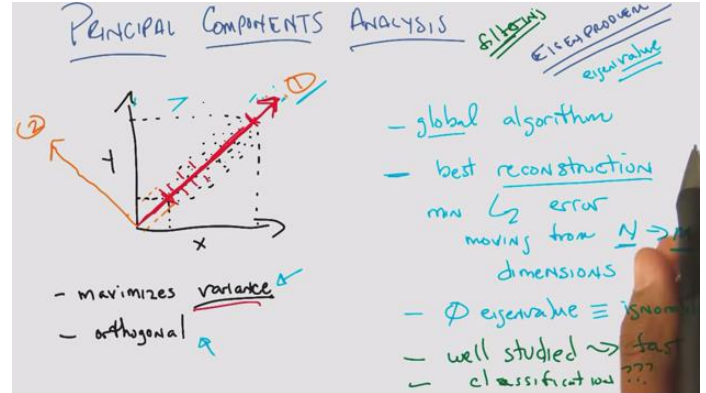 PRINCIPAL COMPONENTS ANALYSIS
filtering
EIGENPROBLEM
eigenvalue
①
②
Y
X
- maximizes variance
- orthogonal
- global algorithm
- best reconstruction
min ↳ error
moving from N →
dimensions
- Ø eigenvalue ≡
- well studied ~> fast
- classification ???